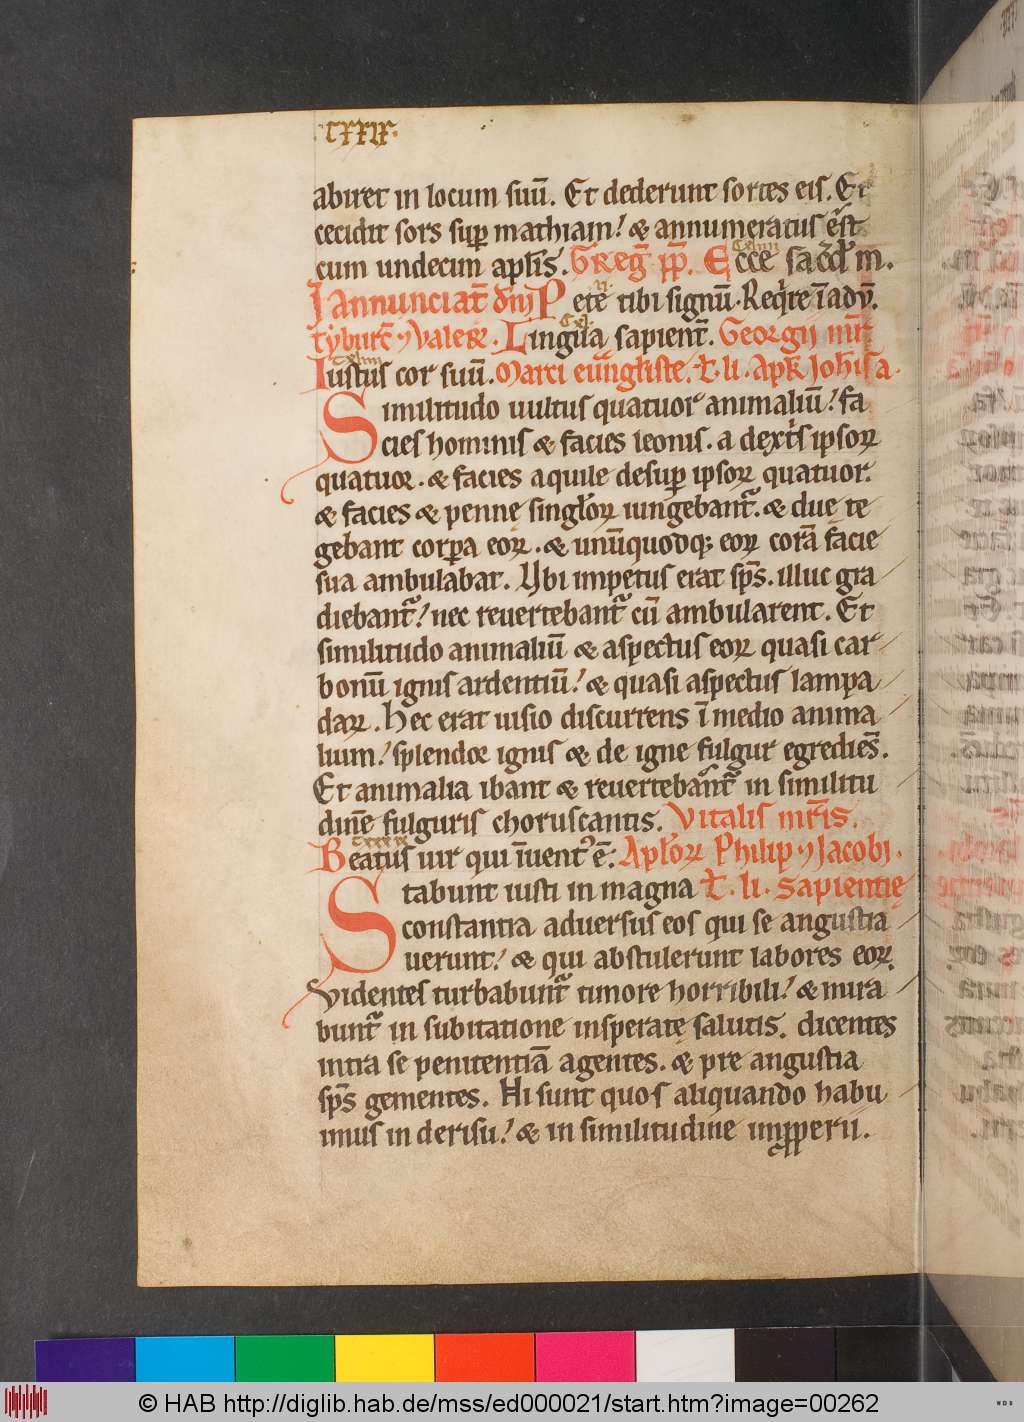 CXXIX.
abiret in locum suū. Et dederunt sortes eis. Et
cecidit sors sup mathiam! & annumeratus ē st
cum undecim apłis. Greg̅ pp̅. Ecce sac̅d̅ m.
In annunciat̅ dn̅i Pete tibi signū. Req̇re ī adv̅.
Tyburc̅ ⁊ Valer̅. Lingua sapient̅. Georgii m̅r̅
Iustus cor suū. Marci euu̅gliste. t̅. li. Apk̅ Joh̅is a.
Similitudo uultus quatuor animaliū! fa
cies hominis & facies leonis. a dext̅s ipsoꝝ
quatuor. & facies aquile desup ipsoꝝ quatuor.
& facies & penne singl̅oꝝ iungebant̅. & due te
gebant corpa eoꝝ. & unūquodq; eoꝝ corā facie
sua ambulabat. Ubi impetus erat sp̅s. illuc gra
diebant̅! nec reuertebant̅ cū ambularent. Et
similitudo animaliū & aspectus eoꝝ quasi car
bonū ignis ardentiū! & quasi aspectus lampa
daꝝ. Hec erat uisio discurrens ī medio anima
lium! splendor ignis & de igne fulgur egrediēs.
Et animalia ibant & reuertebant̅ in similitu
dinē fulguris choruscantis. Vitalis mr̅is.
CXXXIX
Beatus uir qui īuent᷒ ē. Apl̅oꝝ Philip. ⁊ Jacobi.
Stabunt iusti in magna t̅. li. Sapientię
constantia aduersus eos qui se angustia
uerunt! & qui abstulerunt labores eoꝝ.
Videntes turbabunt̅ timore horribili! & mira
bunt̅ in subitatione insperatę salutis. dicentes
intra se penitentiā agentes. & pre angustia
sp̅s gementes. Hi sunt quos aliquando habu
imus in derisu! & in similitudine impperii.
© HAB http://diglib.hab.de/mss/ed000021/start.htm?image=00262